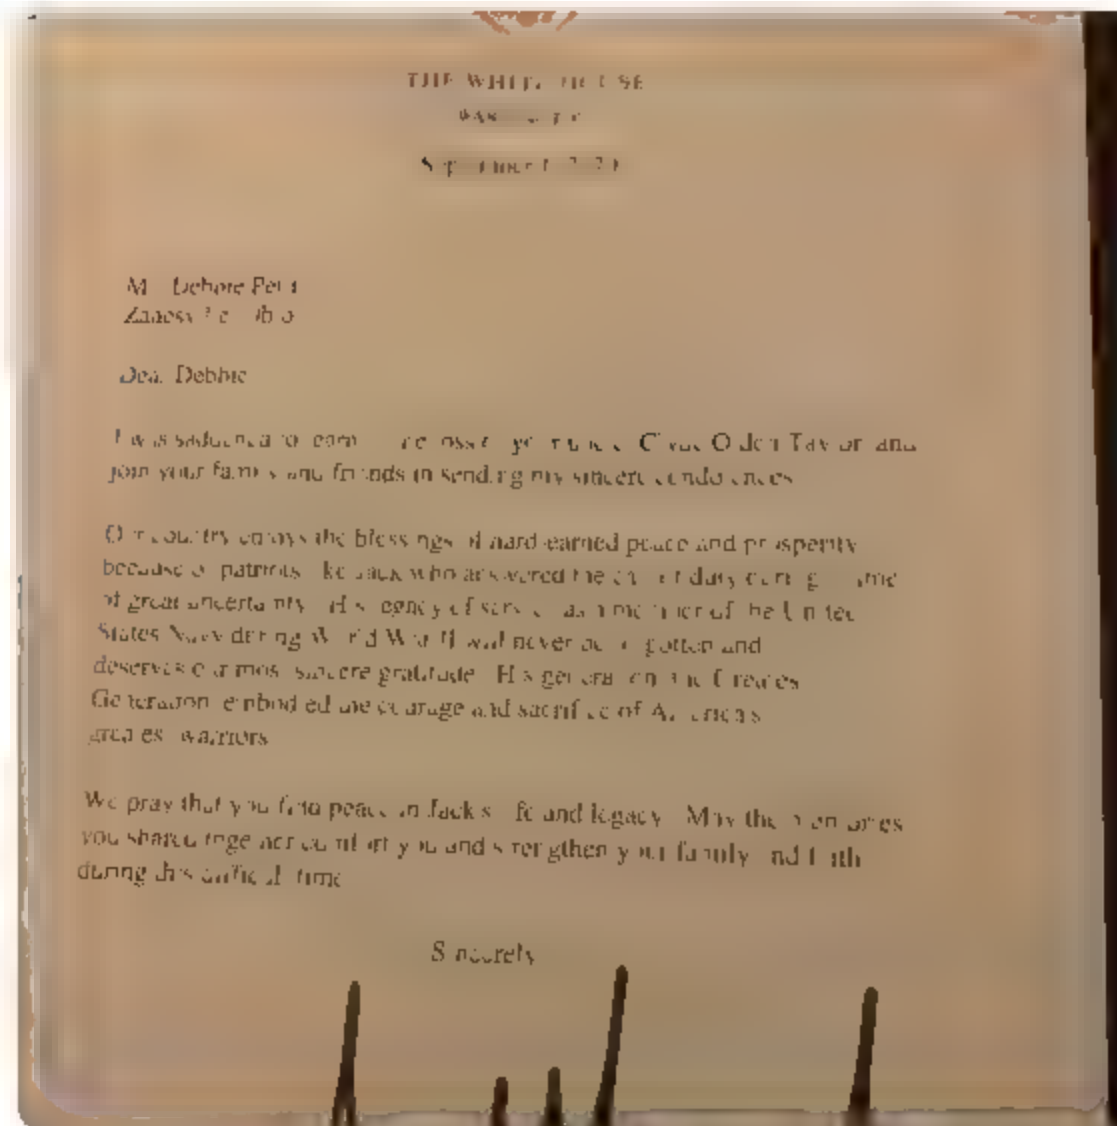 THE WHITE HOUSE
WASHINGTON
September
Zanesville Ohio
Dear Debbie
I was saddened to learn the loss Clyde Olden Taylor and
join your family and friends in sending my sincere condolences
Our country enjoys the blessings of hard-earned peace and prosperity
because of patriots like Jack who answered the call of duty during time
of great uncertainty His legacy of service as a member of the United
States Navy during World War II will never be forgotten and
deserves our most sincere gratitude His generation the Greatest
Generation embodied the courage and sacrifice of America's
greatest warriors
We pray that you find peace in Jack's life and legacy May the memories
you shared together comfort you and strengthen your family and faith
during this difficult time
Sincerely